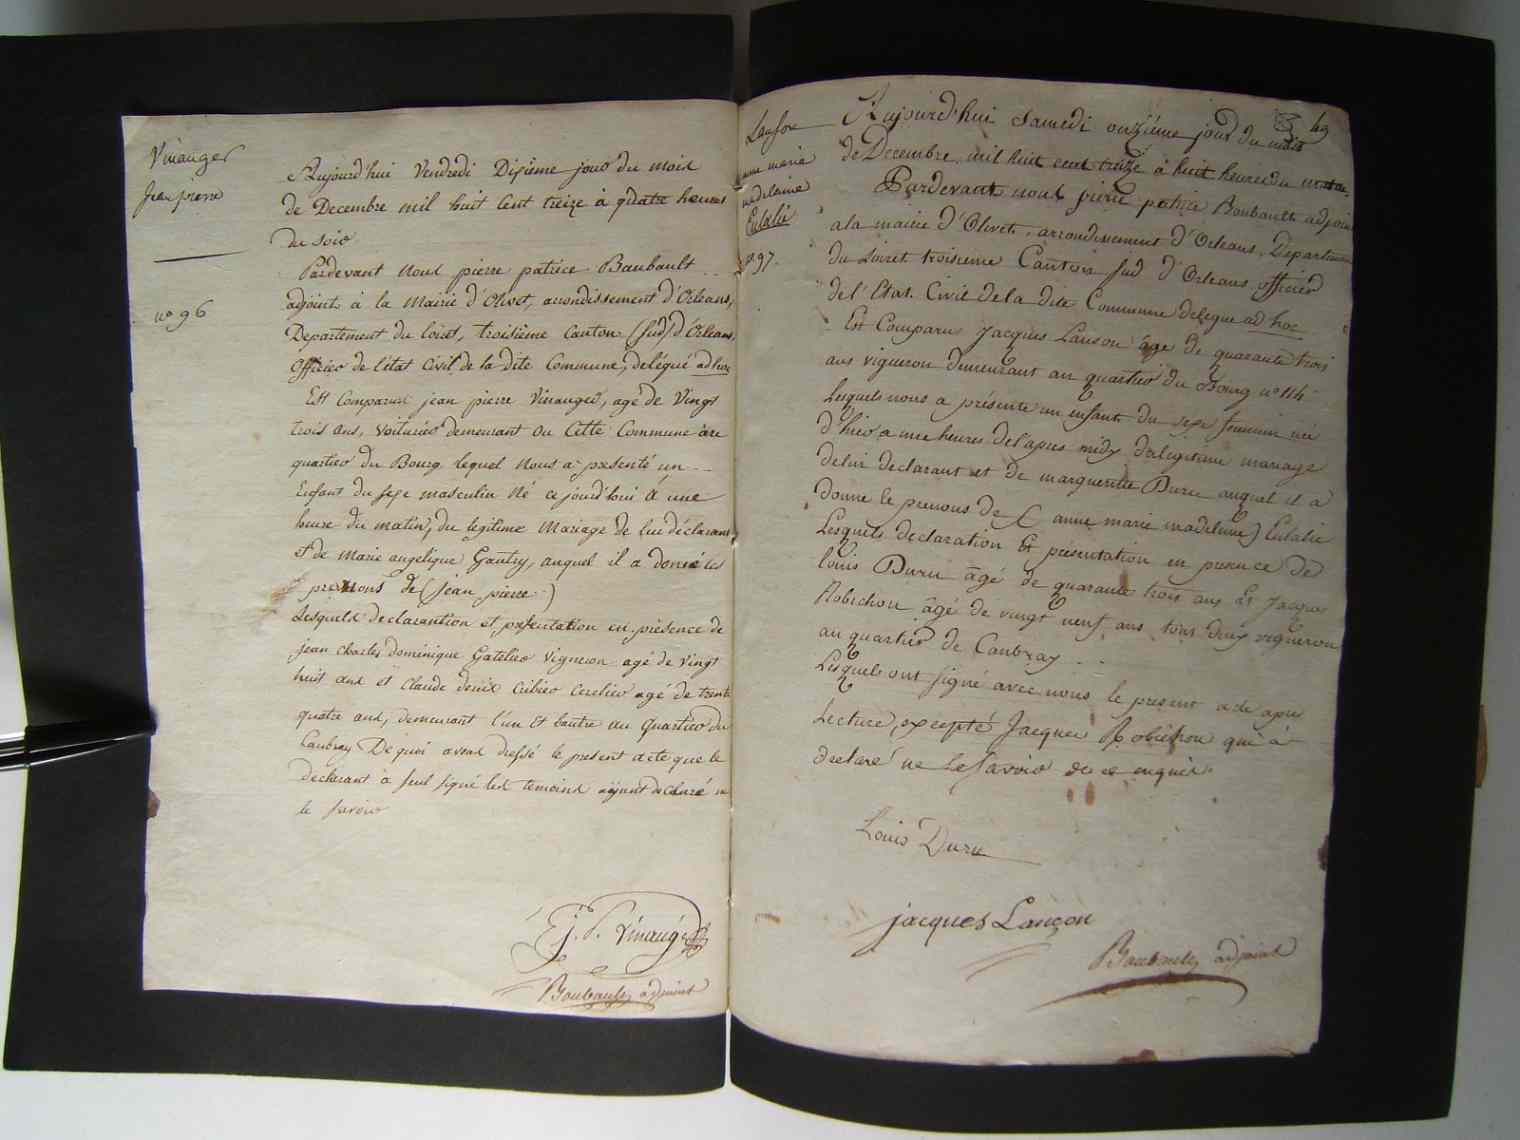 Vinauger
Jean pierre
n° 96
Aujourd'hui Vendredi Dixième jour du mois
de Decembre mil huit Cent treize à quatre heures
du soir
Pardevant Nous pierre patrice Baubault
adjoint à la Mairie d'Olivet, arrondissement d'Orleans,
Departement du loiret, troisième Canton (sud) d'Orleans,
Officier de l'état Civil de la dite Commune, delégué ad hoc
Est Comparu jean pierre Vinauger, agé de Vingt
trois ans, voiturier demeurant en Cette Commune
quartier du Bourg lequel Nous a presenté un
Enfant du sexe masculin Né cejourd'hui à une
heure du matin, du legitime Mariage de lui déclarant
et de Marie angelique Gautry, auquel il a donné les
prenoms de (jean pierre)
Lesquels declarantion et presentation en présence de
jean charles dominique Gatelier Vigneron agé de Vingt
huit ans et Claude denis agé de trente
quatre ans, demeurant l'un Et lautre au Quartier du
Caubray De quoi avons dressé le present acte que le
declarant a seul signé les temoins ayant declaré ne
le savoir
J. P. Vinauger
Baubault adjoint
49
Lanson
anne marie
madelaine
Eulalie
n° 97.
Aujourd'hui Samedi onzième jour du mois
de Decembre, mil huit cent treize à huit heures du matin
Pardevant nous pierre patrice Baubault adjoint
a la mairie d'Olivet, arrondissement d'Orleans, Departement
du Loiret troisieme Canton sud d'Orleans officier
de l'Etat Civil de la dite Commune delegue ad hoc
Est Comparu Jacques Lanson âge de quarante trois
ans vigneron demeurant au quartier du Bourg n° 114
Lesquels nous a présente un enfant du sexe feminin né
d'hier a une heures de l'apres midy de legitime mariage
de lui declarant et de marguerite Duru auquel il a
donne le prenous de (anne marie madeleine) Eulalie
Lesquels declaration Et présentation en presence de
louis Duru âgé de quarante trois ans Et Jacques
Robichon âgé de vingt neuf ans tous deux vigneron
au quartier de Caubray
Lesquels ont signé avec nous le present acte apres
Lecture, excepté Jacques Robichon qui à
declaré ne le savoir de ce enquis.
Louis Duru
jacques Lançon
Baubault adjoint